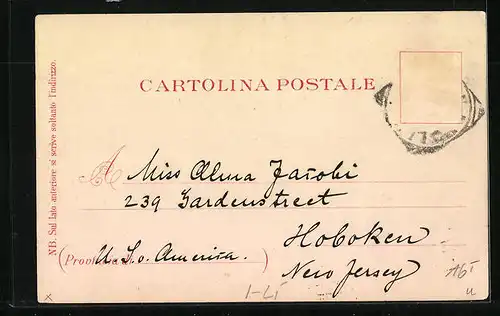 NB. Sul lato anteriore si scrive soltanto l'indirizzo.
CARTOLINA POSTALE
A Miss Alma Jacobi
239 Gardenstreet
Hoboken
(Provincia U. S. o. America.)
New Jersey